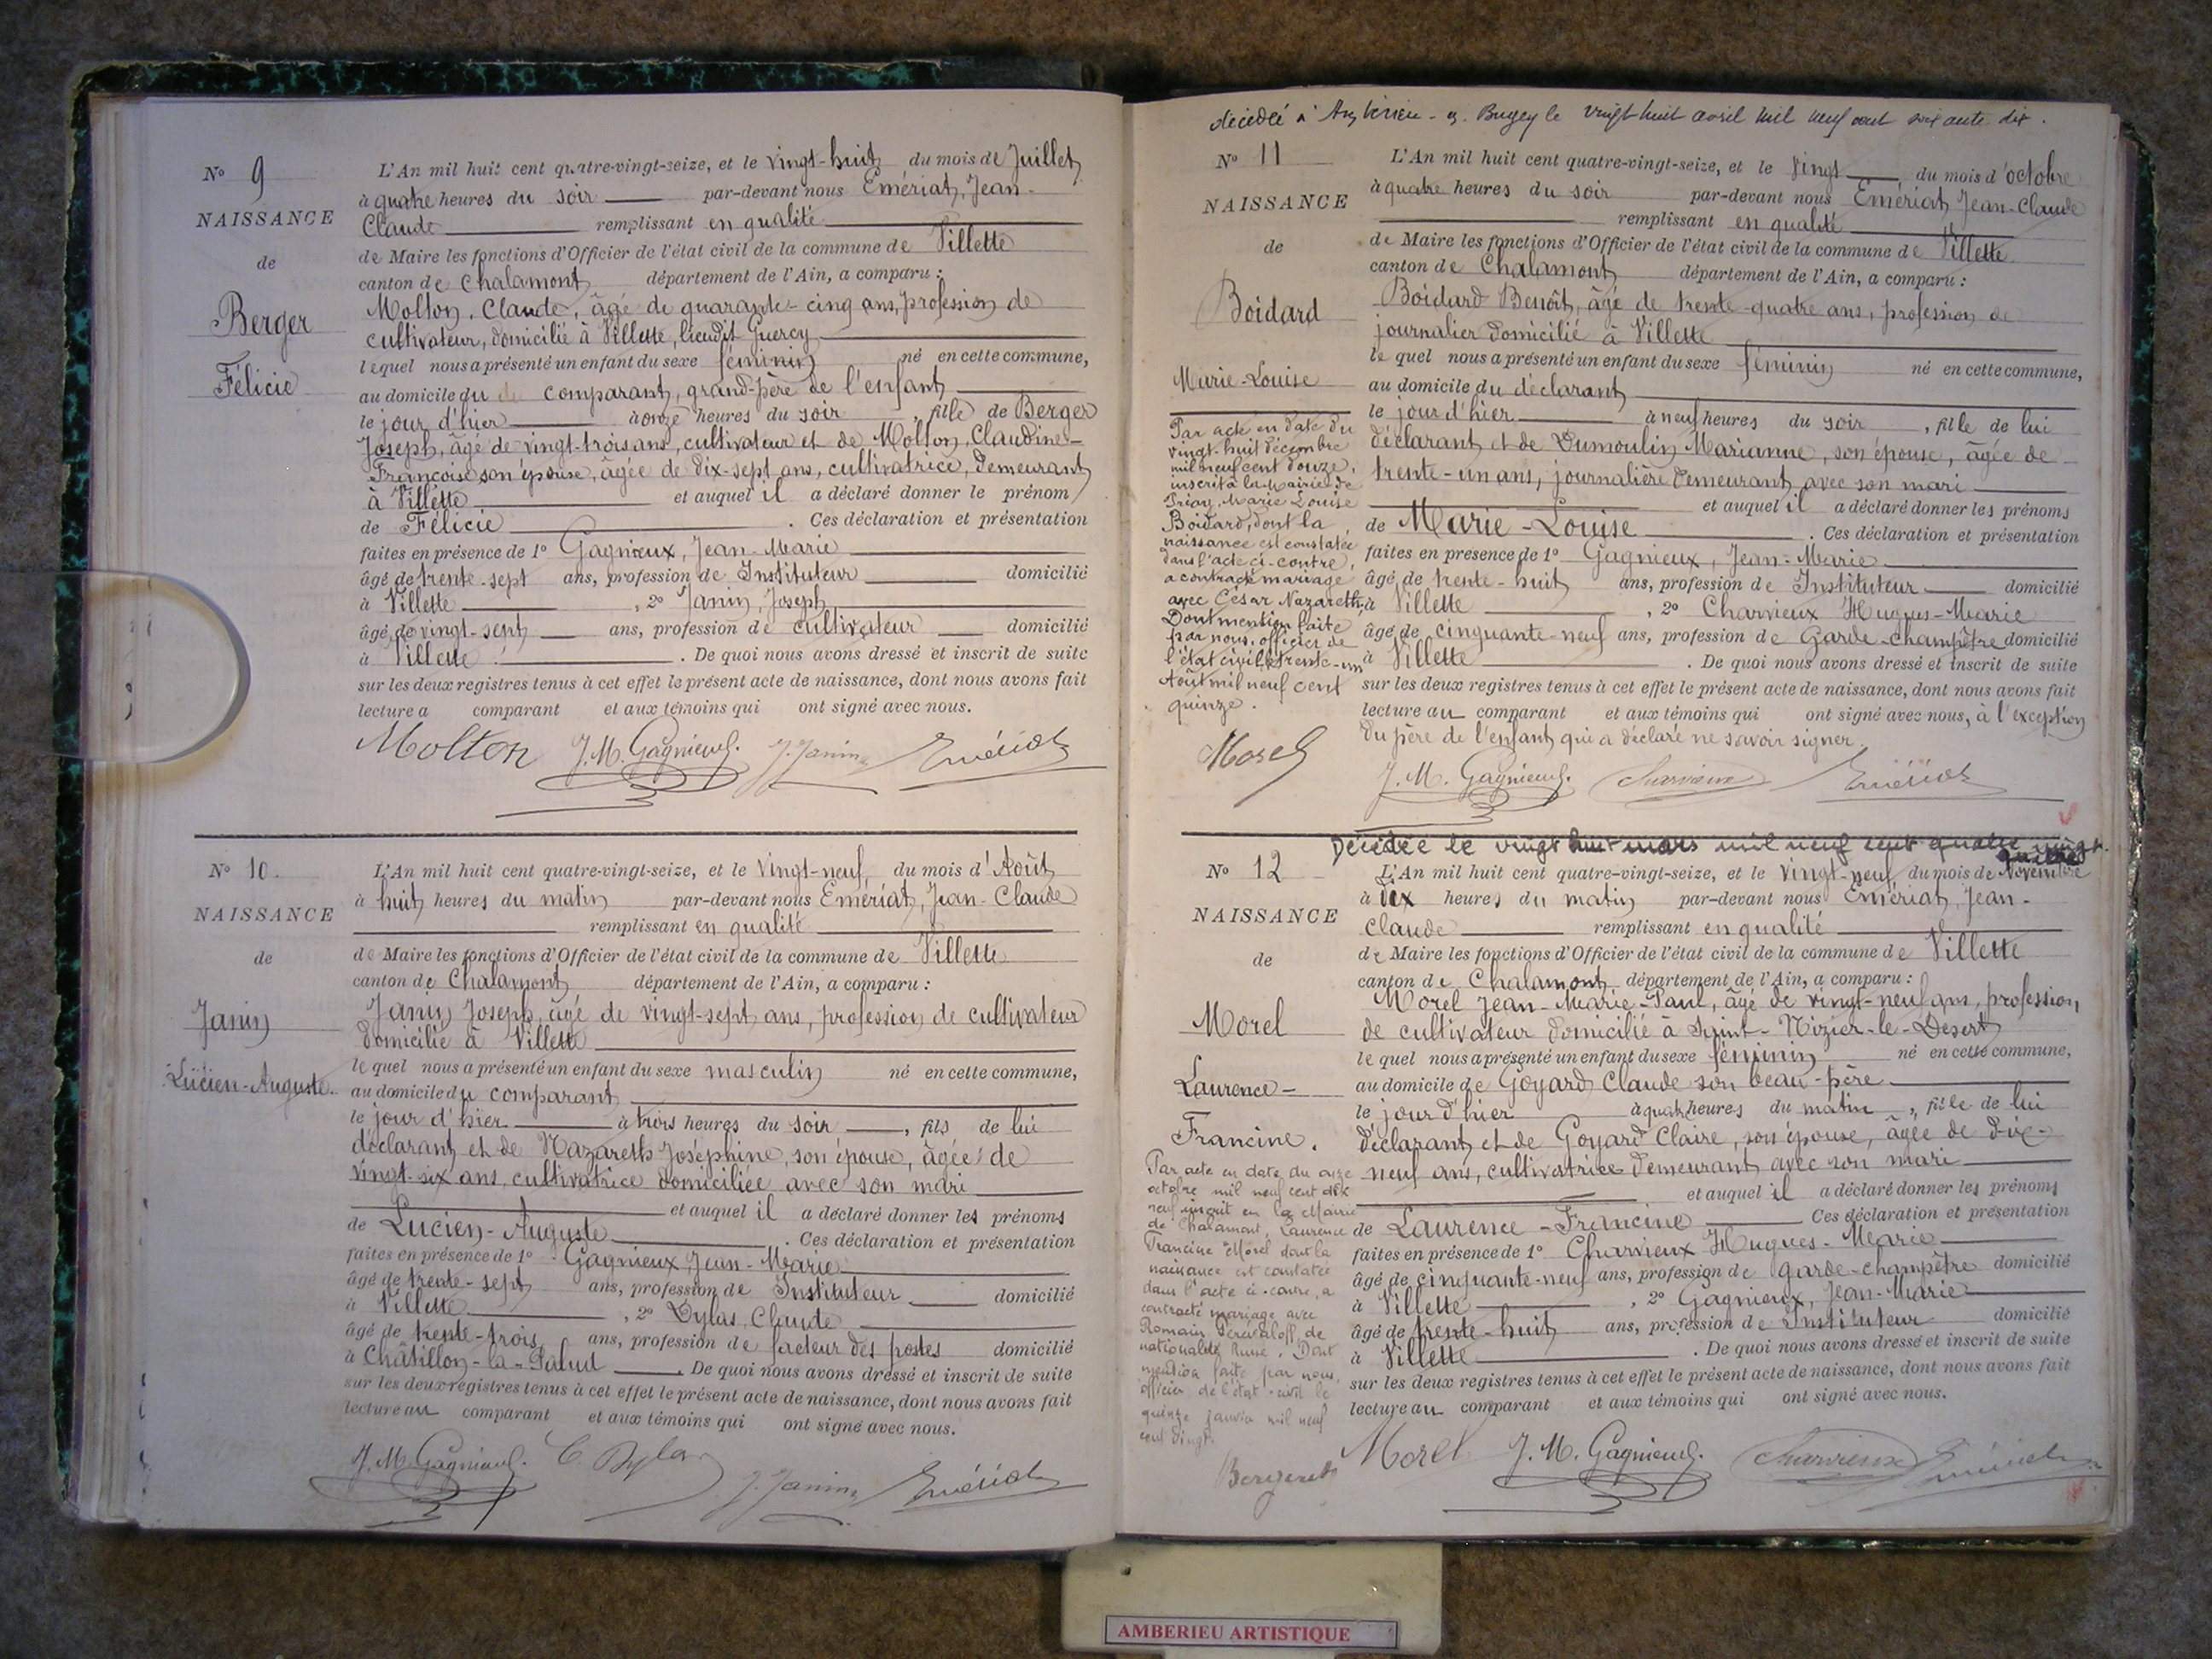 N° 9
NAISSANCE
de
Berger
Félicie
L'An mil huit cent quatre-vingt-seize, et le vingt-huit du mois de Juillet
à quatre heures du soir par-devant nous Emériat, Jean-
Claude remplissant en qualité
de Maire les fonctions d'Officier de l'état civil de la commune de Villette
canton de Chalamont département de l'Ain, a comparu :
Molton, Claude, âgé de quarante-cinq ans, profession de
cultivateur, domicilié à Villette, lieudit Guercy
lequel nous a présenté un enfant du sexe féminin né en cette commune,
au domicile du comparant, grand-père de l'enfant
le jour d'hier à onze heures du soir, fille de Berger
Joseph, âgé de vingt-trois ans, cultivateur et de Molton, Claudine-
Françoise son épouse, âgée de dix-sept ans, cultivatrice, demeurant
à Villette et auquel il a déclaré donner le prénom
de Félicie. Ces déclaration et présentation
faites en présence de 1° Gagnieux, Jean-Marie
âgé de trente-sept ans, profession de Instituteur domicilié
à Villette, 2° Janin, Joseph
âgé de vingt-sept ans, profession de cultivateur domicilié
à Villette. De quoi nous avons dressé et inscrit de suite
sur les deux registres tenus à cet effet le présent acte de naissance, dont nous avons fait
lecture a comparant et aux témoins qui ont signé avec nous.
Molton J. M. Gagnieux. J. Janin Emériat
N° 10.
NAISSANCE
de
Janin
Lucien-Auguste.
L'An mil huit cent quatre-vingt-seize, et le vingt-neuf du mois d'Août
à huit heures du matin par-devant nous Emériat, Jean-Claude
remplissant en qualité
de Maire les fonctions d'Officier de l'état civil de la commune de Villette
canton de Chalamont département de l'Ain, a comparu :
Janin Joseph, âgé de vingt-sept ans, profession de cultivateur
domicilié à Villette
lequel nous a présenté un enfant du sexe masculin né en cette commune,
au domicile du comparant
le jour d'hier à trois heures du soir, fils de lui
déclarant et de Nazareth Joséphine, son épouse, âgée de
vingt-six ans, cultivatrice domiciliée avec son mari
et auquel il a déclaré donner les prénoms
de Lucien-Auguste. Ces déclaration et présentation
faites en présence de 1° Gagnieux, Jean-Marie
âgé de trente-sept ans, profession de Instituteur domicilié
à Villette, 2° Dylas, Claude
âgé de trente-trois ans, profession de facteur des postes domicilié
à Châtillon-la-Palud. De quoi nous avons dressé et inscrit de suite
sur les deux registres tenus à cet effet le présent acte de naissance, dont nous avons fait
lecture au comparant et aux témoins qui ont signé avec nous.
J. M. Gagnieux. C Dylas J. Janin Emériat
décédée à Ambérieu-en-Bugey le vingt huit avril mil neuf cent soixante dix.
N° 11
NAISSANCE
de
Boidard
Marie-Louise
Par acte en date du
vingt-huit décembre
mil neuf cent douze,
inscrit à la Mairie de
Priay, Marie Louise
Boidard, dont la
naissance est constatée
dans l'acte ci-contre,
a contracté mariage
avec César Nazareth.
Dont mention faite
par nous, officier de
l'état civil le trente-un
Août mil neuf cent
quinze.
Morel
L'An mil huit cent quatre-vingt-seize, et le vingt du mois d'octobre
à quatre heures du soir par-devant nous Emériat, Jean-Claude
remplissant en qualité
de Maire les fonctions d'Officier de l'état civil de la commune de Villette
canton de Chalamont département de l'Ain, a comparu :
Boidard Benoît, âgé de trente-quatre ans, profession de
journalier domicilié à Villette
lequel nous a présenté un enfant du sexe féminin né en cette commune,
au domicile du déclarant
le jour d'hier à neuf heures du soir, fille de lui
déclarant et de Dumoulin Marianne, son épouse, âgée de
trente-un ans, journalière demeurant avec son mari
et auquel il a déclaré donner les prénoms
de Marie-Louise. Ces déclaration et présentation
faites en présence de 1° Gagnieux, Jean-Marie
âgé de trente-huit ans, profession de Instituteur domicilié
à Villette, 2° Charvieux Hugues-Marie
âgé de cinquante-neuf ans, profession de Garde-champêtre domicilié
à Villette. De quoi nous avons dressé et inscrit de suite
sur les deux registres tenus à cet effet le présent acte de naissance, dont nous avons fait
lecture au comparant et aux témoins qui ont signé avec nous, à l'exception
du père de l'enfant qui a déclaré ne savoir signer.
J. M. Gagnieux. Charvieux Emériat
Décédée le vingt huit mars mil neuf cent quatre vingt
quatre
N° 12
NAISSANCE
de
Morel
Laurence-
Francine.
Par acte en date du onze
octobre mil neuf cent dix
neuf inscrit en la Mairie
de Chalamont, Laurence
Francine Morel dont la
naissance est constatée
dans l'acte ci-contre, a
contracté mariage avec
Romain de
nationalité Russe. Dont
mention faite par nous,
officier de l'état-civil le
quinze janvier mil neuf
cent vingt.
L'An mil huit cent quatre-vingt-seize, et le vingt-neuf du mois de Novembre
à dix heures du matin par-devant nous Emériat, Jean-
Claude remplissant en qualité
de Maire les fonctions d'Officier de l'état civil de la commune de Villette
canton de Chalamont département de l'Ain, a comparu :
Morel Jean-Marie-Paul, âgé de vingt-neuf ans, profession
de cultivateur domicilié à Saint-Nizier-le-Désert
lequel nous a présenté un enfant du sexe féminin né en cette commune,
au domicile de Goyard Claude son beau-père
le jour d'hier à quatre heures du matin, fille de lui
déclarant et de Goyard Claire, son épouse, âgée de dix-
neuf ans, cultivatrice demeurant avec son mari
et auquel il a déclaré donner les prénoms
de Laurence-Francine Ces déclaration et présentation
faites en présence de 1° Charvieux Hugues-Marie
âgé de cinquante-neuf ans, profession de garde-champêtre domicilié
à Villette, 2° Gagnieux, Jean-Marie
âgé de trente-huit ans, profession de Instituteur domicilié
à Villette. De quoi nous avons dressé et inscrit de suite
sur les deux registres tenus à cet effet le présent acte de naissance, dont nous avons fait
lecture au comparant et aux témoins qui ont signé avec nous.
Morel J. M. Gagnieux. Charvieux Emériat
AMBERIEU ARTISTIQUE